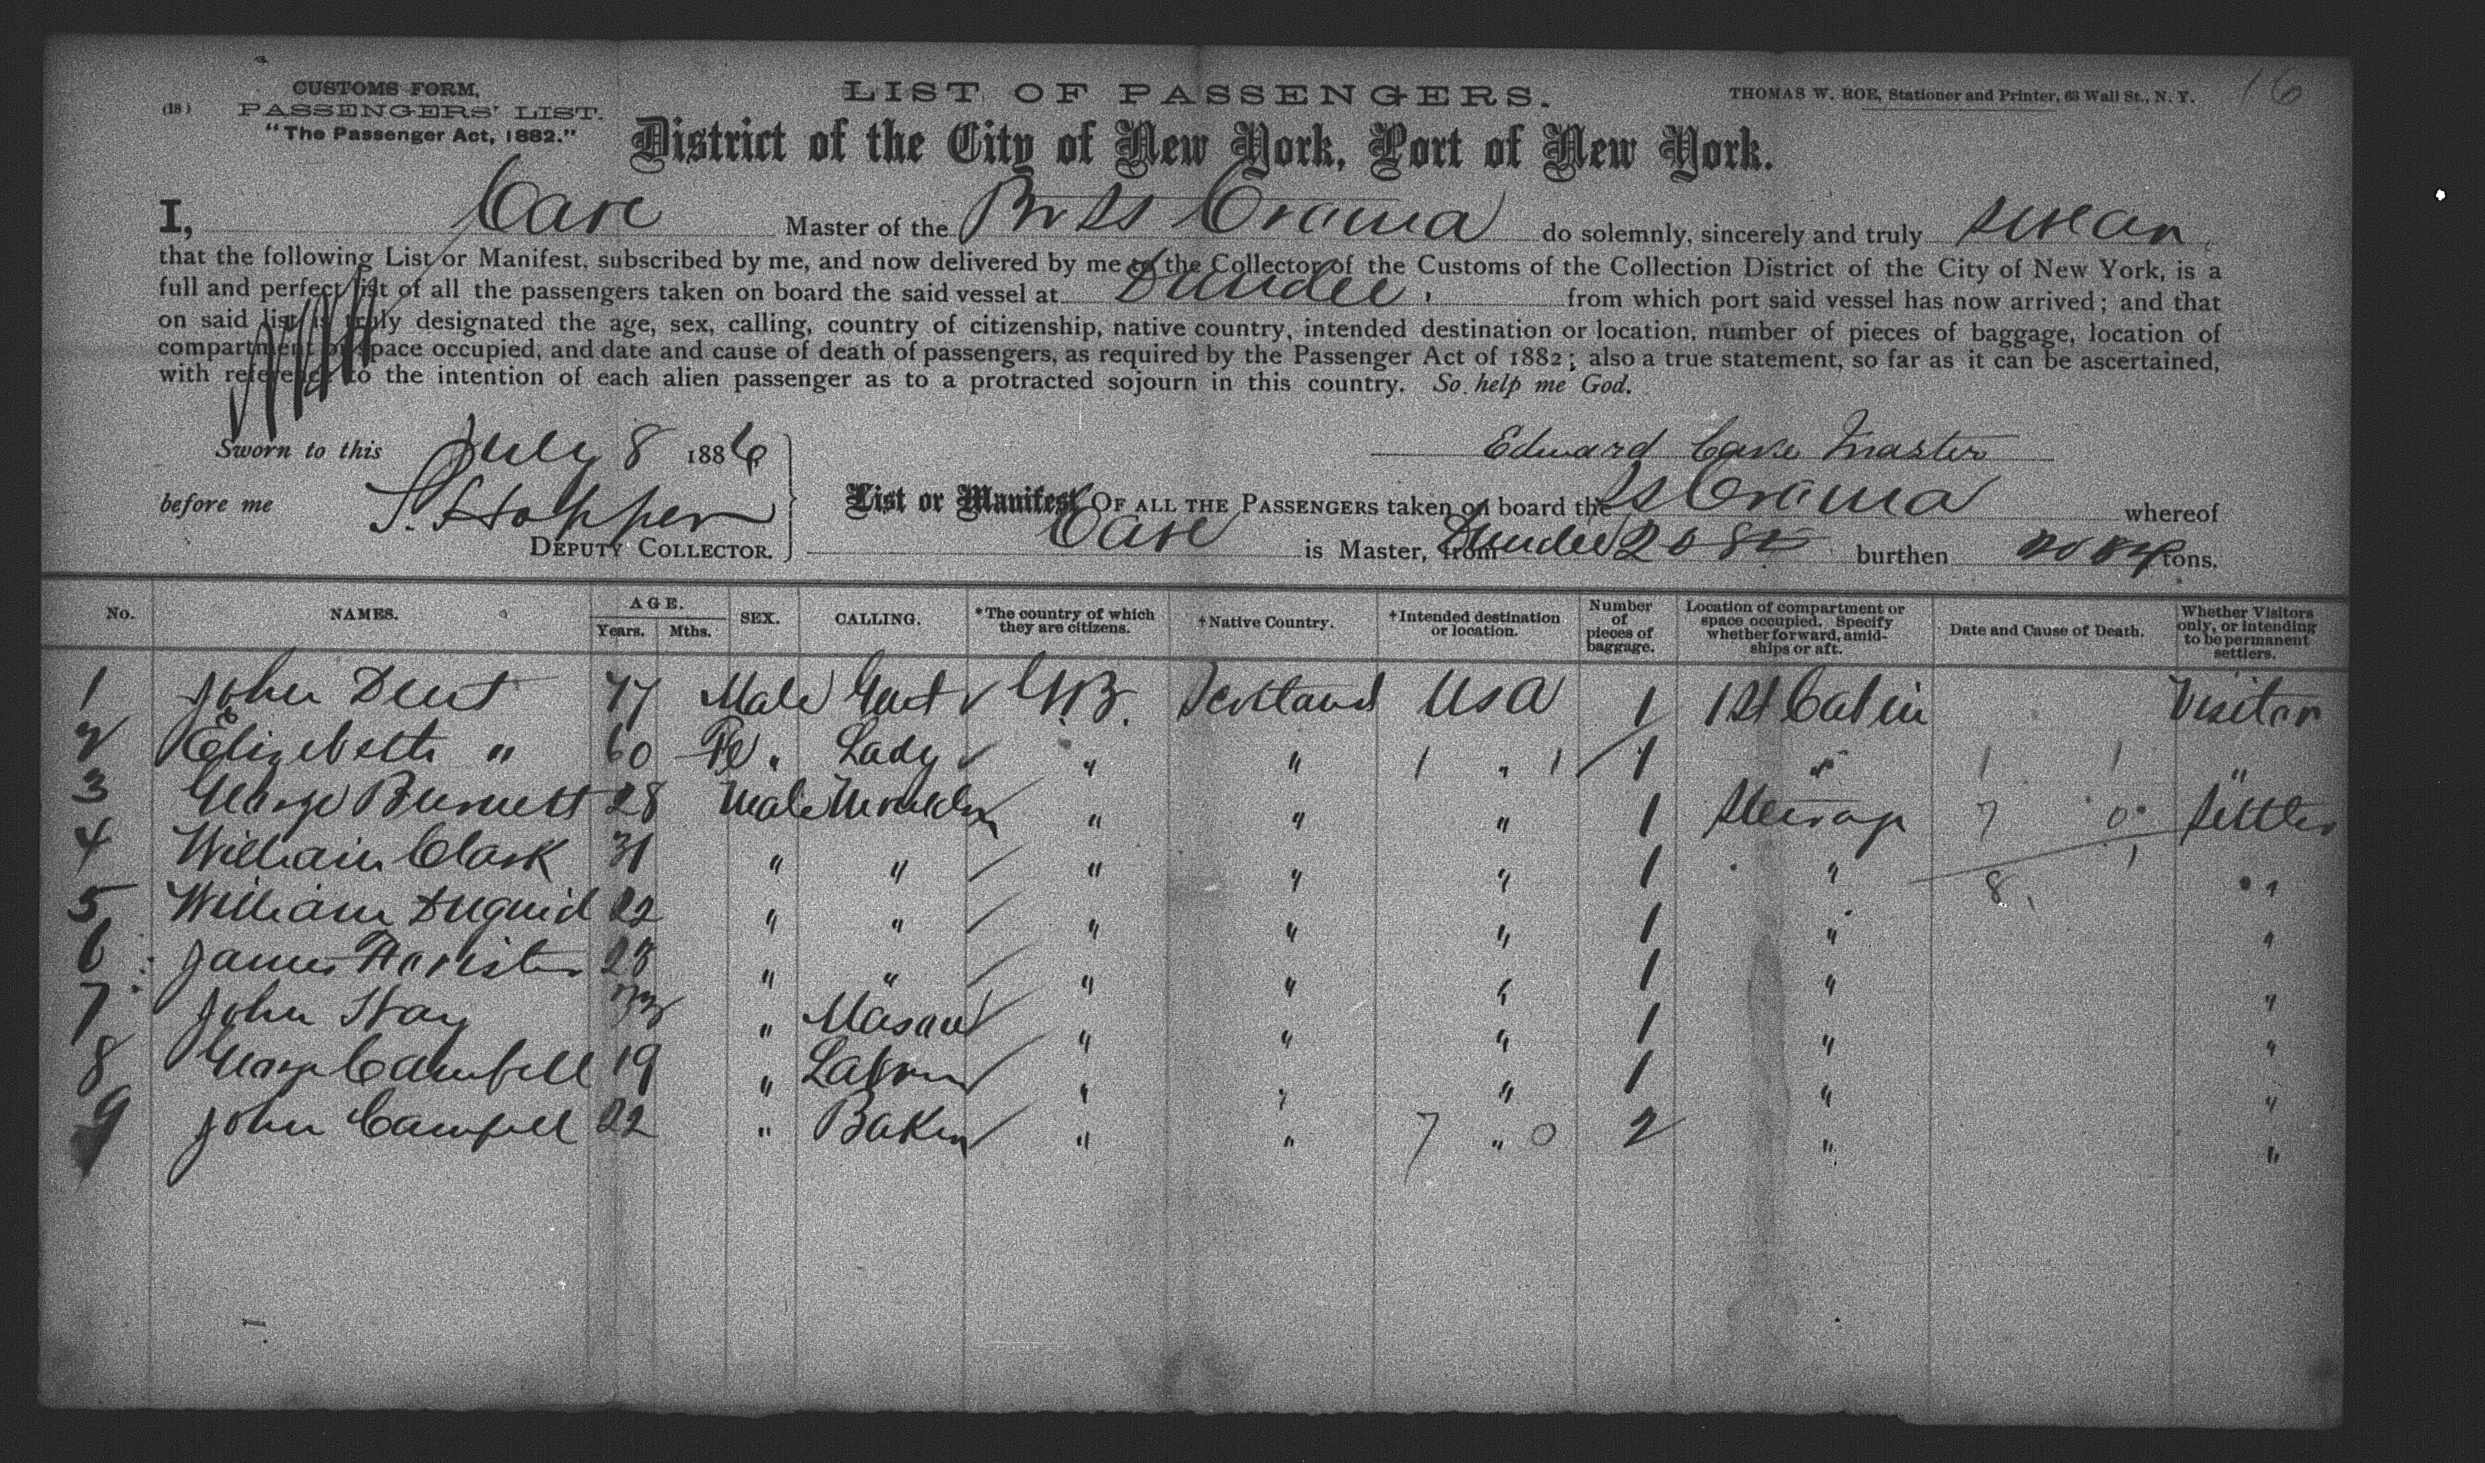 CUSTOMS FORM,
(18) PASSENGERS' LIST.
"The Passenger Act, 1882."
LIST OF PASSENGERS.
THOMAS W. ROE, Stationer and Printer, 63 Wall St., N. Y.
16
District of the City of New York, Port of New York.
I, Cave Master of the Br SS Crama do solemnly, sincerely and truly swear
that the following List or Manifest, subscribed by me, and now delivered by me to the Collector of the Customs of the Collection District of the City of New York, is a
full and perfect list of all the passengers taken on board the said vessel at Dundee, from which port said vessel has now arrived; and that
on said list is truly designated the age, sex, calling, country of citizenship, native country, intended destination or location, number of pieces of baggage, location of
compartment or space occupied, and date and cause of death of passengers, as required by the Passenger Act of 1882; also a true statement, so far as it can be ascertained,
with reference to the intention of each alien passenger as to a protracted sojourn in this country. So help me God.
Sworn to this July 8 1886
Edward Cave Master
before me S. Hopper
DEPUTY COLLECTOR.
List or Manifest OF ALL THE PASSENGERS taken on board the SS Crama whereof
Cave is Master, from Dundee 2082 burthen tons.
No. NAMES. AGE. Years. Mths. SEX. CALLING. *The country of which they are citizens. †Native Country. †Intended destination or location. Number of pieces of baggage. Location of compartment or space occupied. Specify whether forward, amidships or aft. Date and Cause of Death. Whether Visitors only, or intending to be permanent settlers.
1 John Dent 77 Male Gent G.B. Scotland USA 1 1st Cabin Visitor
2 Elizabeth " 60 Fe. Lady " " 1 " 1 1 " 1 1 "
3 George Burnett 28 Male Moulder " " " 1 Steerage 7 0 Settler
4 William Clark 31 " " " " " 1 " 8 1 "
5 William Duguid 22 " " " " " 1 " "
6 James 28 " " " " " 1 " "
7 John Hay 33 " Mason " " " 1 " "
8 George Campbell 19 " Labourer " " " 1 " "
9 John Campbell 22 " Baker " " 7 " 0 2 " "